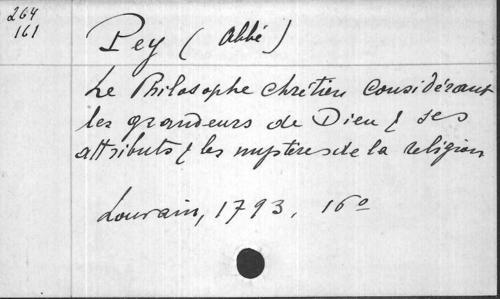 264
161
Pey (Abbé)
Le Philosophe chrétien considérant
les grandeurs de Dieu & ses
attributs & les mystères de la religion
Louvain, 1793, 16º